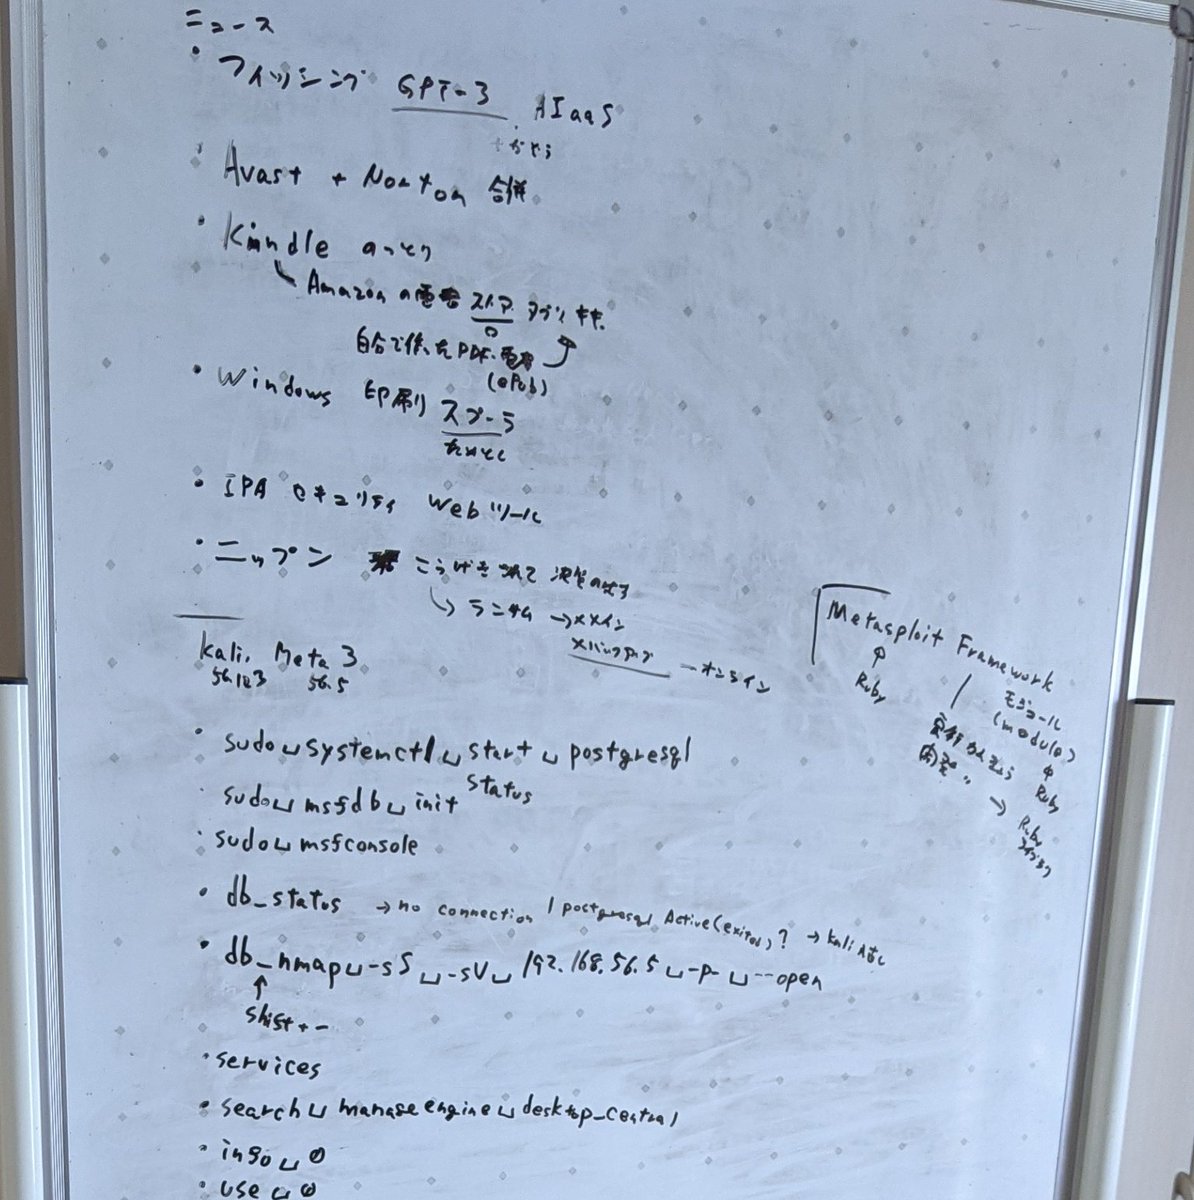 ニュース
・フィッシング GPT-3 AIaaS
・Avast + Norton 合併
・Kindle のっとり
Amazonの電書 ストア アプリ
自分で作ったPDF・電書
(ePub)
・Windows 印刷 スプーラ
ためとく
・IPA セキュリティ Webツール
・ニップン こうげきうけて 決算のばす
↳ ランサム →×メイン
×バックアップ ーオンライン
Kali, Meta 3
56.103 56.5
・sudo␣systemctl␣start␣postgresql
status
sudo␣msfdb␣init
・sudo␣msfconsole
・db_status → no connection / postgresql Active(exited)? → kali
・db_nmap␣-sS␣-sV␣192.168.56.5␣-p-␣--open
↑
Shift + -
・services
・search␣manageengine␣desktop_central
・info␣0
・use␣0
Metasploit Framework
↑
Ruby
モジュール
(module)
↑
Ruby
開発
→ Ruby